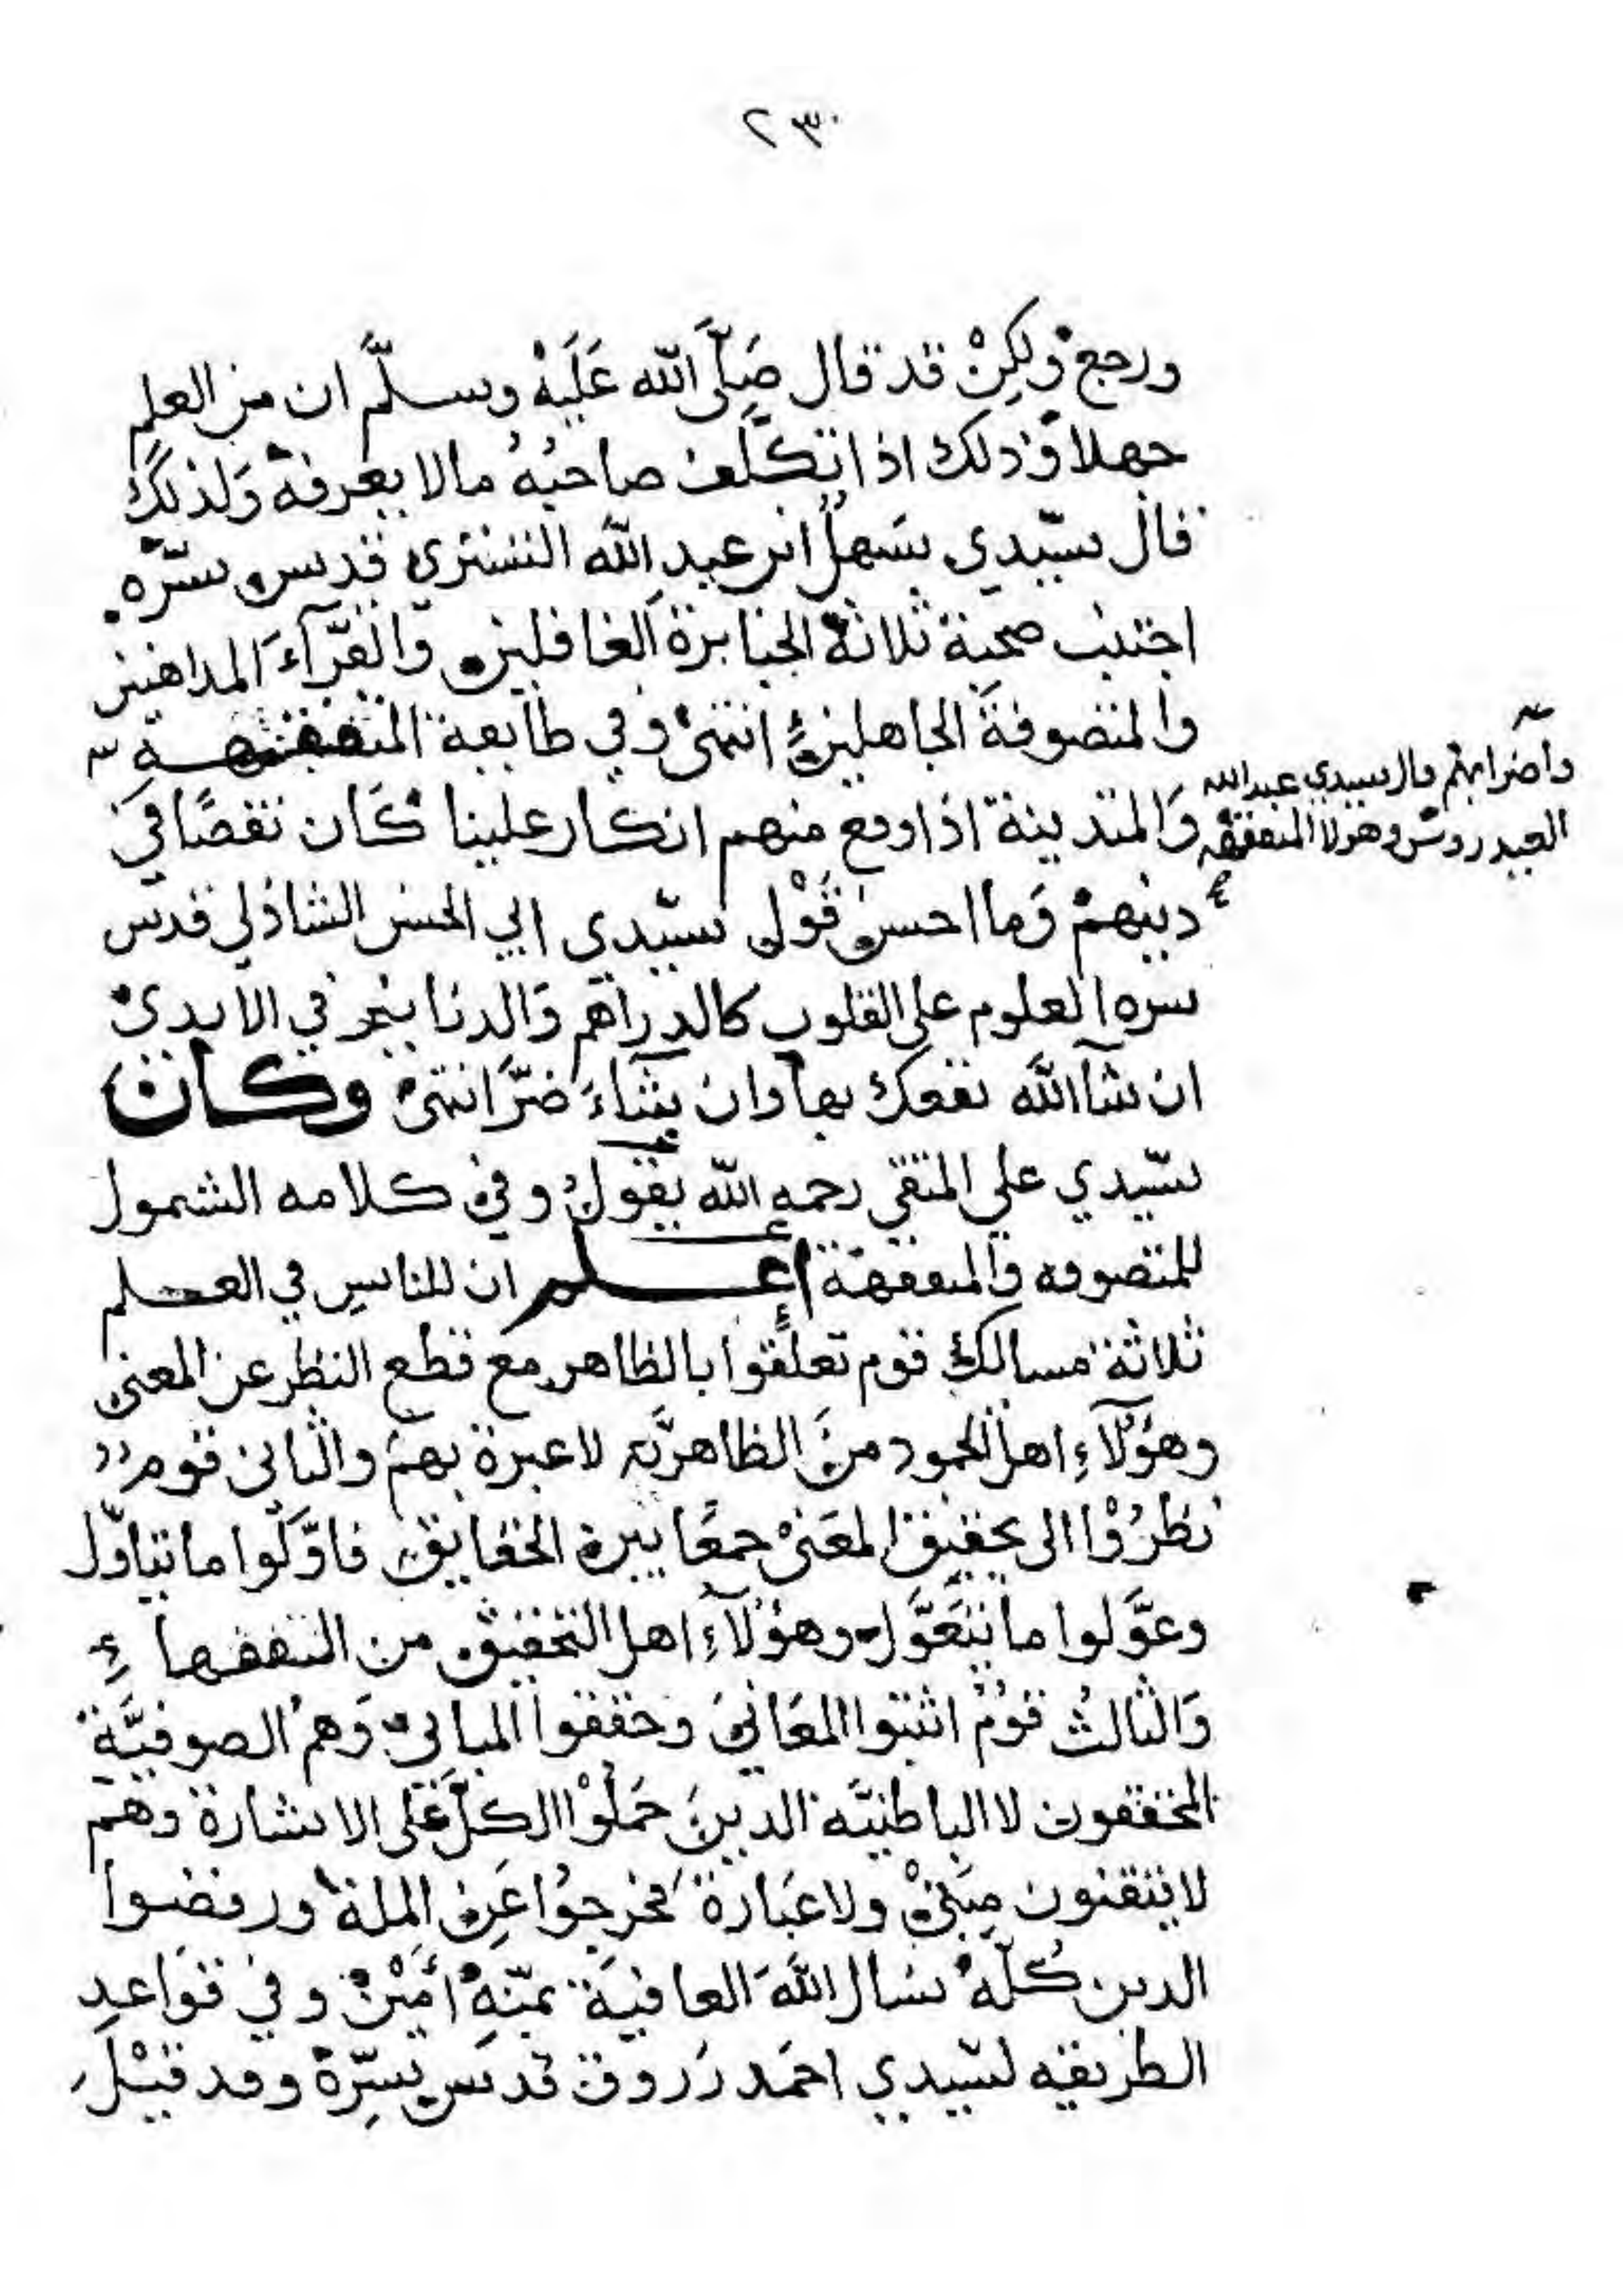 ٢٣٠
ورجع ولكِنْ قد قال صَلَّى الله عَلَيْهْ وسلَّم ان من العلم
جهلا وذلك اذا تكَلَّف صاحبُهُ مالا يعرفه وَلذلك
قال سيّدي سَهل ابن عبدِ الله التستري قدس سّره
اجتنب صحبة ثلاثة الجبابرة الغافلين والقرّآءَ المداهنين
والمتصوفة الجاهلين انتهىْ وفي طايفة المتفقهةِ
وآضرابهم قال سيدي عبدالله
العيدروس وهولا المتفقهه
وَالمتدينة اذا وقع منهم انكار علينا كَان نقصًا في
دينهمْ وَما احسن قَوْل سيّدي ابي الحسن الشاذلي قدس
سره العلوم على القلوب كالدراهم وَالدنانير في الايديْ
ان شآ الله نفعك بها وان يشآءَ ضَرَّ انتهىْ وكان
سّيدي علي المتقي رحمه الله يقولُ وفي كلامه الشمول
للمتصوفه والمتفقهة اعلم ان للناسِ في العلم
ثلاثة مسالك قوم تعلّقوا بالظاهر مع قطع النظر عن المعنى
وهؤلآءِ اهل الجمود من الظاهريَّه لا عبرة بهمْ والثاني قوم
نظرُوْا الى تحقيق المعَنىْ جمعًا بين الحقايق فاوَّلوا ما تياوّل
وعوَّلوا ما يتَعَوَّل وهؤلآءِ اهل التحقيق من التفقهاء
وَالثالثُ قومٌ اثبتوا المعَاني وحققوا المباني وَهم الصوفيَّة
المحققون لا الباطنيَّه الدين حَملوْا الكلّ عَلى الاشارة وهمْ
لا يتقنون مبَنىْ ولا عبَارة فخرجوُا عَن الملة ورفضوا
الدين كُلّهْ نسال اللهَ العافيَة بمنّهِ اَمَيْنْ وفي قوَاعدِ
الطريقه لسّيدي احمَد زروق قدسَ سِرّهْ وقد قيْل